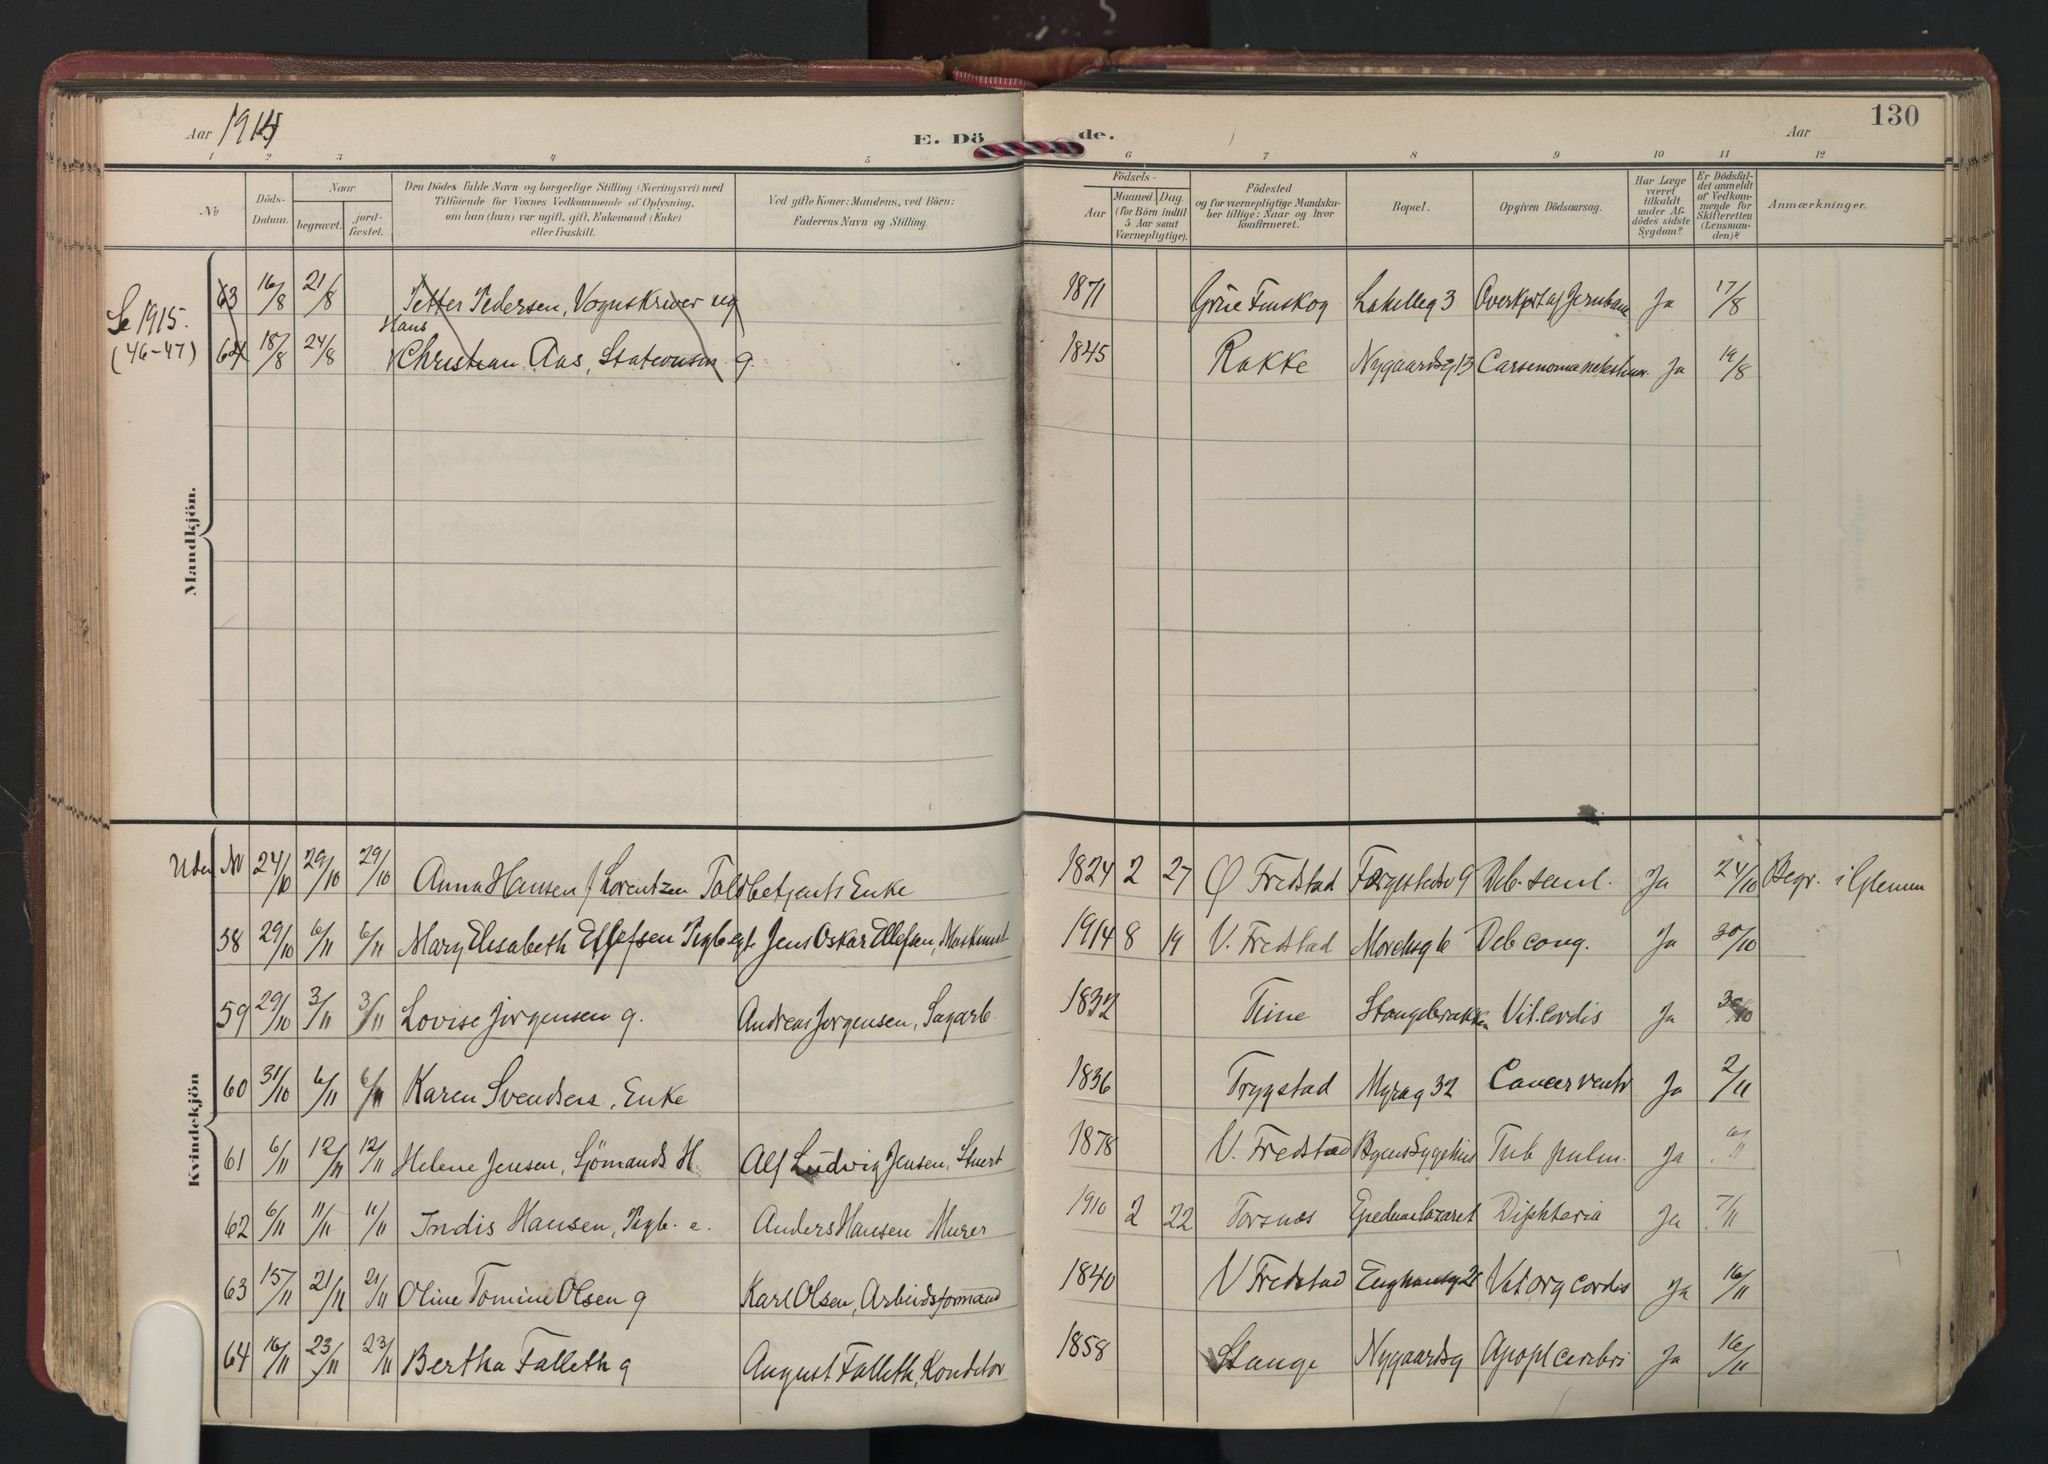 Aar 1914
E. Dö
de.
Aar
130
1 2 3 4 5 6 7 8 9 10 11 12
Nr
Döds-Datum.
Naar
begravet.
jord-fæstet.
Den Dödes fulde Navn og borgerlige Stilling (Næringsvei) med
Tilföiende for Voxnes Vedkommende af Oplysning,
om han (hun) var ugift, gift, Enkemand (Enke)
eller fraskilt.
Ved gifte Koner: Mandens, ved Börn:
Faderens Navn og Stilling.
Födsels-
Aar
Maaned
Dag
(for Börn indtil
5 Aar samt
Værnepligtige).
Födested
og for værnepligtige Mandska-
ber tillige: Naar og hvor
konfirmeret.
Bopæl.
Opgiven Dödsaarsag.
Har Læge
været
tilkaldt
under Af-
dödes sidste
Sygdom?
Er Dödsfal-
det anmeldt
af Vedkom-
mende for
Skifteretten
(Lensman-
den)?
Anmærkninger.
Mandkjön.
Se 1915.
(46-47)
63 16/8 21/8 Petter Pedersen, Vognskriver ug 1871 Grue Finskog Ja 17/8
64 18/8 24/8 Hans Christian Aas, 9. 1845 Rakke Nygaardsg 13 Ja 19/8
Kvindekjön
Uden Nr 24/10 29/10 29/10 Anna Hansen f Lorentzen Toldbetjents Enke 1824 2 27 Ø Fredstad Færgestedv 9 Deb. senil. Ja 24/10 Begr. i Glemm
58 29/10 6/11 6/11 Mary Elisabeth Ellefsen Pigb. Jens Oskar Ellefsen, 1914 8 19 V. Fredstad Deb cong. Ja 30/10
59 29/10 3/11 3/11 Lovise Jørgensen g. Andreas Jørgensen, Sagarb. Tune Vit. cordis Ja
60 31/10 6/11 6/11 Karen Svendsen, Enke 1836 Trygstad Myrag 32 Cancer ventr Ja 2/11
61 6/11 12/11 12/11 Helene Jensen, Sjømands H. Alf Ludvig Jensen, Stuert 1878 V. Fredstad Byens Sygehus Tub pulm. Ja 6/11
62 6/11 11/11 11/11 Indis Hansen, Pigb. e. Anders Hansen Murer 1910 2 22 Torsnæs Epedemilazaret Diphteria Ja 7/11
63 15/11 21/11 21/11 Oline Tomine Olsen g Karl Olsen, Arbeidsformand 1840 V Fredstad Enghausg 28 Vit org cordis Ja 16/11
64 16/11 23/11 23/11 Bertha Falleth g August Falleth, Konditor 1858 Stange Nygaardsg Apopl cerebri Ja 16/11